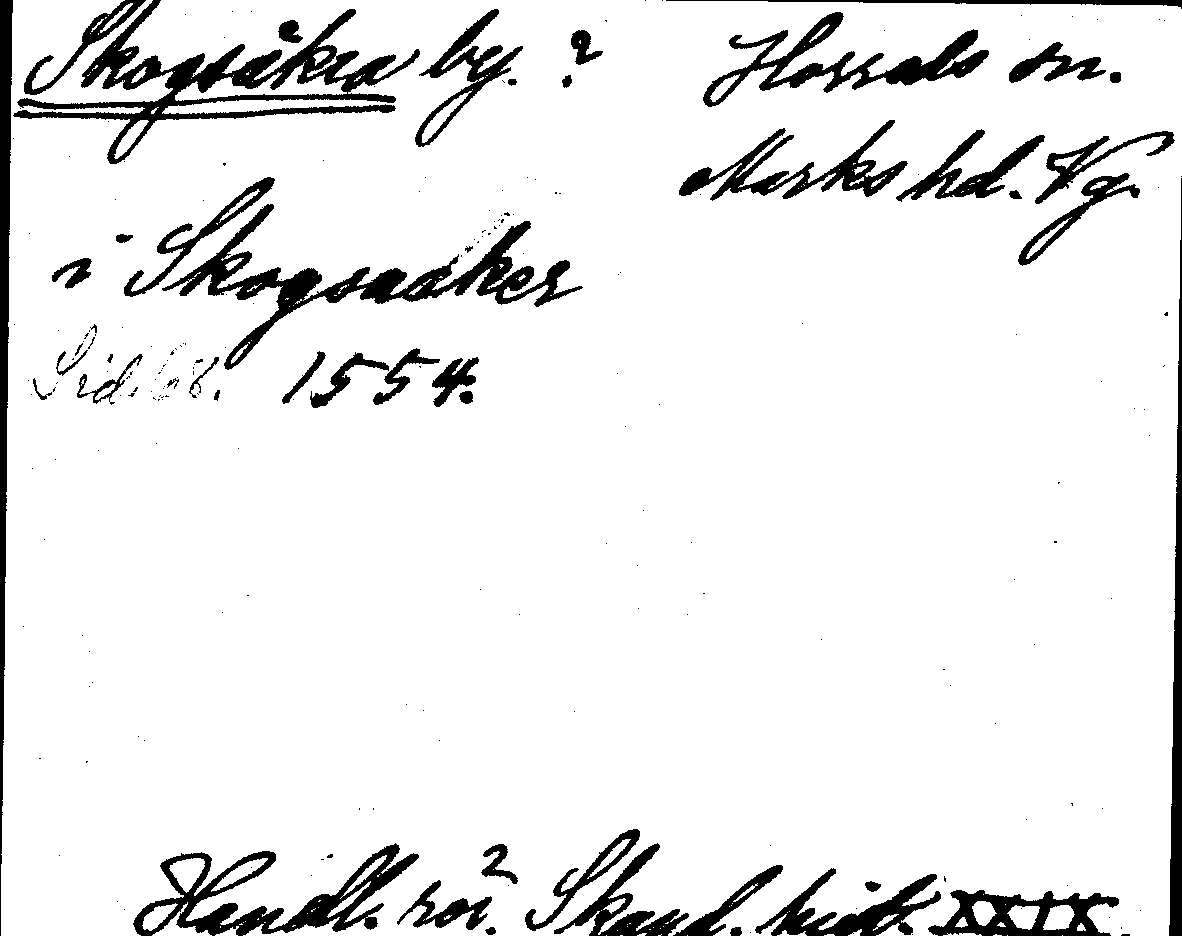 Skogsåkra by. ? Horreds sn.
Marks hd. Vg.
i Skogsaaker
Sid. 68. 1554.
Handl. rör. Skand. hist. XXIX